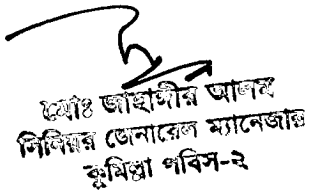 মোঃ জাহাঙ্গীর আলম
সিনিয়র জেনারেল ম্যানেজার
কুমিল্লা পবিস-২